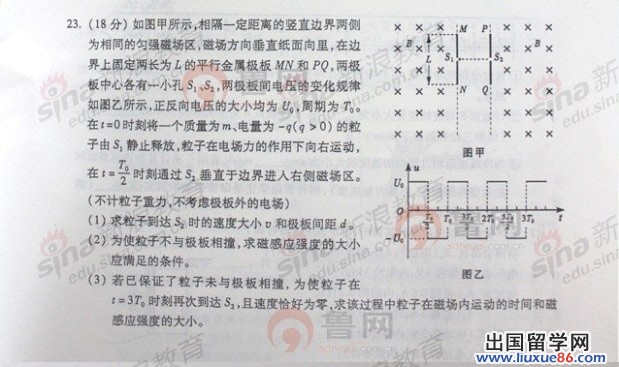 23. (18 分) 如图甲所示,相隔一定距离的竖直边界两侧
为相同的匀强磁场区,磁场方向垂直纸面向里,在边
界上固定两长为L的平行金属极板MN和PQ,两极
板中心各有一小孔S₁、S₂,两极板间电压的变化规律
如图乙所示,正反向电压的大小均为U₀,周期为T₀。
在t=0时刻将一个质量为m、电量为-q(q>0)的粒
子由S₁静止释放,粒子在电场力的作用下向右运动,
在t=T₀/2时刻通过S₂垂直于边界进入右侧磁场区。
(不计粒子重力,不考虑极板外的电场)
(1) 求粒子到达S₂时的速度大小v和极板间距d。
(2) 为使粒子不与极板相撞,求磁感应强度的大小
应满足的条件。
(3) 若已保证了粒子未与极板相撞,为使粒子在
t=3T₀时刻再次到达S₂,且速度恰好为零,求该过程中粒子在磁场内运动的时间和磁
感应强度的大小。
M P
B B
L S₁ S₂
N Q
图甲
u
U₀
O T₀/2 T₀ 3T₀/2 2T₀ 5T₀/2 3T₀ t
-U₀
图乙
sina 新浪教育
edu.sina.com.cn
鲁网
sdnews.com.cn
出国留学网
www.liuxue86.com